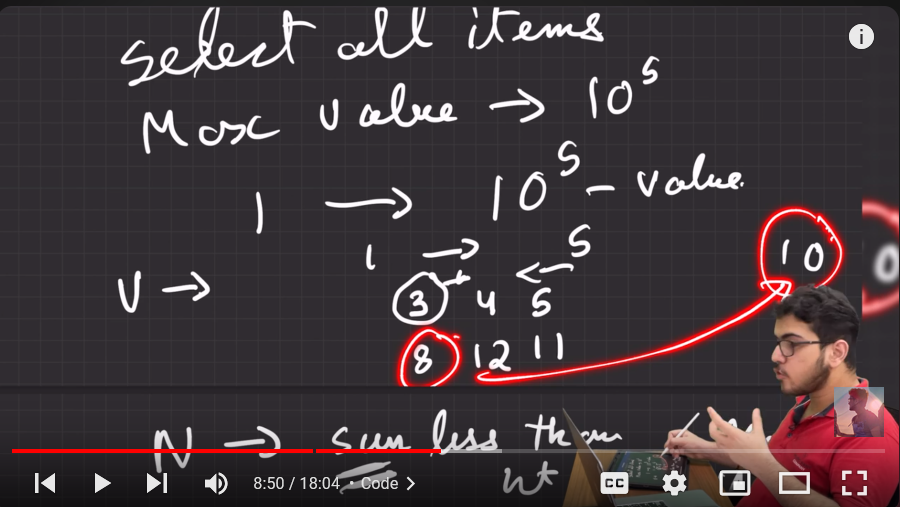 select all items
Max value → 10^5
1 → 10^5 - value
1 → 5
V → 3 4 5
10
8 12 11
N → sum less than
wt
8:50 / 18:04 • Code >
CC